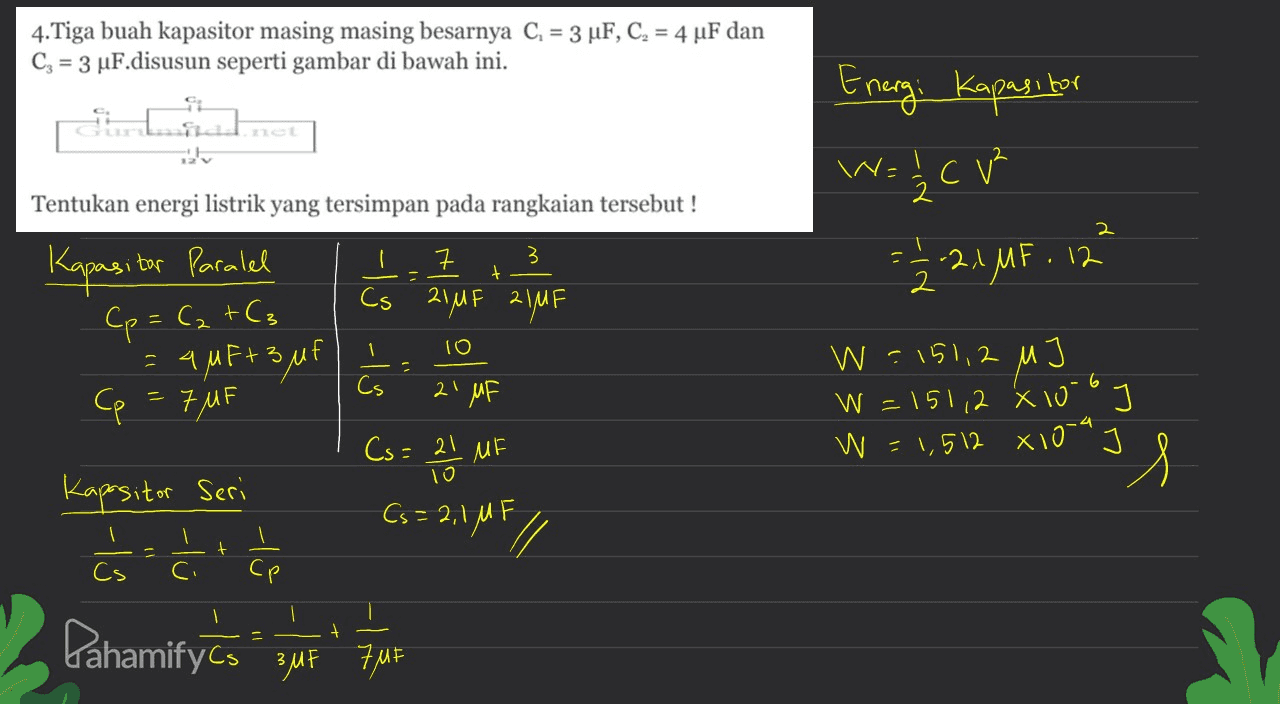 4.Tiga buah kapasitor masing masing besarnya C₁ = 3 µF, C₂ = 4 µF dan
C₃ = 3 µF.disusun seperti gambar di bawah ini.
C₁
C₂
12 V
Tentukan energi listrik yang tersimpan pada rangkaian tersebut !
Kapasitor Paralel
Cp = C₂ + C₃
= 4 µF + 3 µF
Cp = 7 µF
Kapasitor Seri
1/Cs = 1/C₁ + 1/Cp
1/Cs = 1/3 µF + 1/7 µF
1/Cs = 7/21 µF + 3/21 µF
1/Cs = 10/21 µF
Cs = 21/10 µF
Cs = 2,1 µF //
Energi Kapasitor
W = 1/2 C V²
= 1/2 . 2,1 µF . 12²
W = 151,2 µJ
W = 151,2 x 10⁻⁶ J
W = 1,512 x 10⁻⁴ J
Pahamify